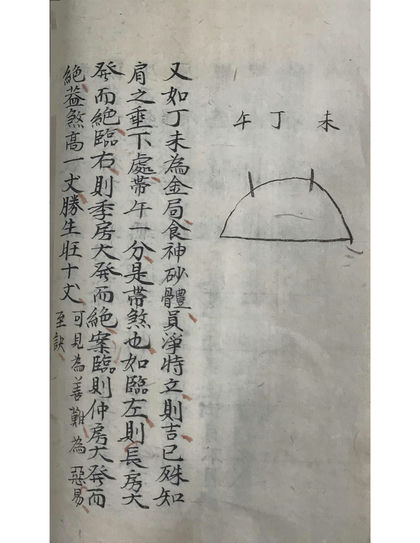 未丁午
又如丁未為金局食神砂體員淨特立則吉已殊知
肩之垂下處帶午一分是帶煞也如臨左則長房大
發而絕臨右則季房大發而絕案臨則仲房大發而
絕葢煞高一丈勝生旺十丈
可見為善難為惡易
至訣